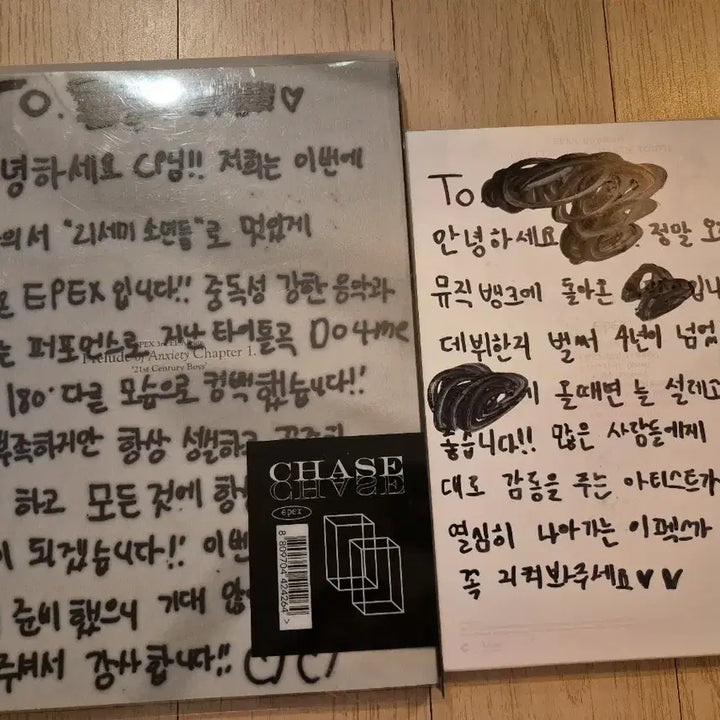 To. ♡
녕하세요 CP님!! 저희는 이번에
의서 "21세미 소년들"로 멋있게
EPEX입니다!! 중독성 강한 음악과
는 퍼포먼스로 지난 타이틀곡 Do 4 me
Prelude of Anxiety Chapter 1.
'21st Century Boys'
180° 다른 모습으로 컴백했습니다!!
부족하지만 항상 성실하고
하고 모든 것에 항상
이 되겠습니다!! 이번
준비했으니 기대
주셔서 감사합니다!!
CHASE
epex
8 809704 424264 >
To.
안녕하세요 정말 오
뮤직뱅크에 돌아온 입니
데뷔한지 벌써 4년이 넘었
올때면 늘 설레고
좋습니다!! 많은 사람들에게
대로 감동을 주는 아티스트가
열심히 나아가는 이펙스가
꼭 지켜봐주세요♥♥